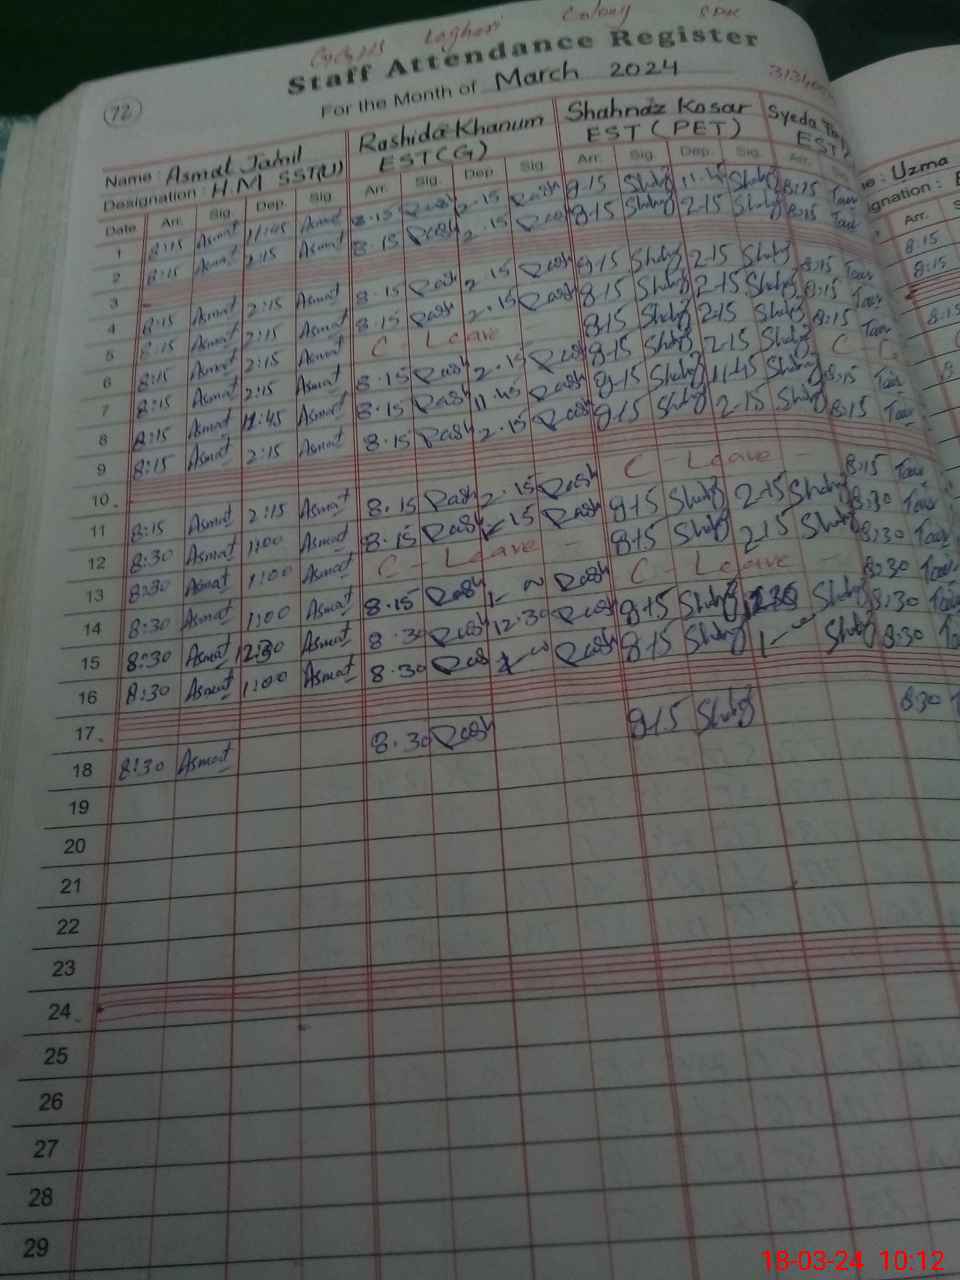 Laghari Colony SDK
Staff Attendance Register
72 For the Month of March 2024
Name : Asmat Jamil Rashida Khanum Shahnaz Kosar Syeda
Designation : H.M SST(U) EST(G) EST (PET) EST : Uzma
Date Arr. Sig. Dep. Sig. Arr. Sig. Dep. Sig. Arr. Sig. Dep. Sig. Arr. Arr.
1 8:15 Asmat 11:45 Asmat 8.15 Rash 2.15 Rash 8.15 Shahg 11.45 Shahg 8:15 Taus 8:15
2 8:15 Asmat 2:15 Asmat 8.15 Rash 2.15 Rash 8.15 Shahg 2.15 Shahg 8:15 Taus 8:15
3
4 8:15 Asmat 2:15 Asmat 8.15 Rash 2.15 Rash 8.15 Shahg 2.15 Shahg 8:15 Taus 8:15
5 8:15 Asmat 2:15 Asmat 8.15 Rash 2.15 Rash 8.15 Shahg 2.15 Shahg 8:15 Taus
6 8:15 Asmat 2:15 Asmat C - Leave - 8.15 Shahg 2.15 Shahg 8:15 Taus
7 8:15 Asmat 2:15 Asmat 8.15 Rash 2.15 Rash 8.15 Shahg 2.15 Shahg C
8 8:15 Asmat 11:45 Asmat 8.15 Rash 11.45 Rash 8.15 Shahg 11.45 Shahg 8:15 Taus
9 8:15 Asmat 2:15 Asmat 8.15 Rash 2.15 Rash 8.15 Shahg 2.15 Shahg 8:15 Taus
10
11 8:15 Asmat 2:15 Asmat 8.15 Rash 2.15 Rash C - Leave - 8:15 Taus
12 8:30 Asmat 1:00 Asmat 8.15 Rash 15 Rash 8.15 Shahg 2.15 Shahg 8:30 Taus
13 8:30 Asmat 1:00 Asmat C - Leave - 8.15 Shahg 2.15 Shahg 8:30 Taus
14 8:30 Asmat 1:00 Asmat 8.15 Rash 1 Rash C - Leave 8:30 Taus
15 8:30 Asmat 12:30 Asmat 8.30 Rash 12.30 Rash 8.15 Shahg 1230 Shahg 8:30 Taus
16 8:30 Asmat 1:00 Asmat 8.30 Rash 1 Rash 8.15 Shahg 1 Shahg 8:30
17
18 8:30 Asmat 8.30 Rash 8.15 Shahg 8:30
19
20
21
22
23
24
25
26
27
28
29
18-03-24 10:12